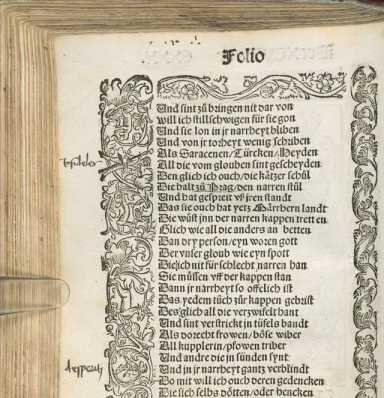 Folio
Und sint zů bringen nit dar von
will ich stillschwigen für sie gon
Und sie lon in jr narrheyt bliben
Und von jr torheyt wenig schriben
Als Saracenen/Türcken/Heyden
All die vom glouben sint gescheyden
Den glich ich ouch/die kätzer schůl
Die halt zů Prag/den narren stůl
Und hat gespreit vß jren standt
Das sie ouch hat yetz Märrhern landt
Die wüst jnn der narren kappen tretten
Glich wie all die anders an betten
Dan dry person/eyn woren gott
Der vnser gloub wie eyn spott
Die ich nit für schlecht narren han
Sie müssen vff der kappen stan
Dann jr narrheyt so offelich ist
Das yedem tüch zůr kappen gebrist
Des glich all die verzwifelt hant
Und sint verstrickt jn tüfels bandt
Als dorecht frowen/böse wiber
All kupplerin/pfowen triber
Und andre die jn sünden synt
Und jn jr narrheyt gantz verblindt
Do mit will ich ouch deren gedencken
Die sich selbs dötten/oder hencken